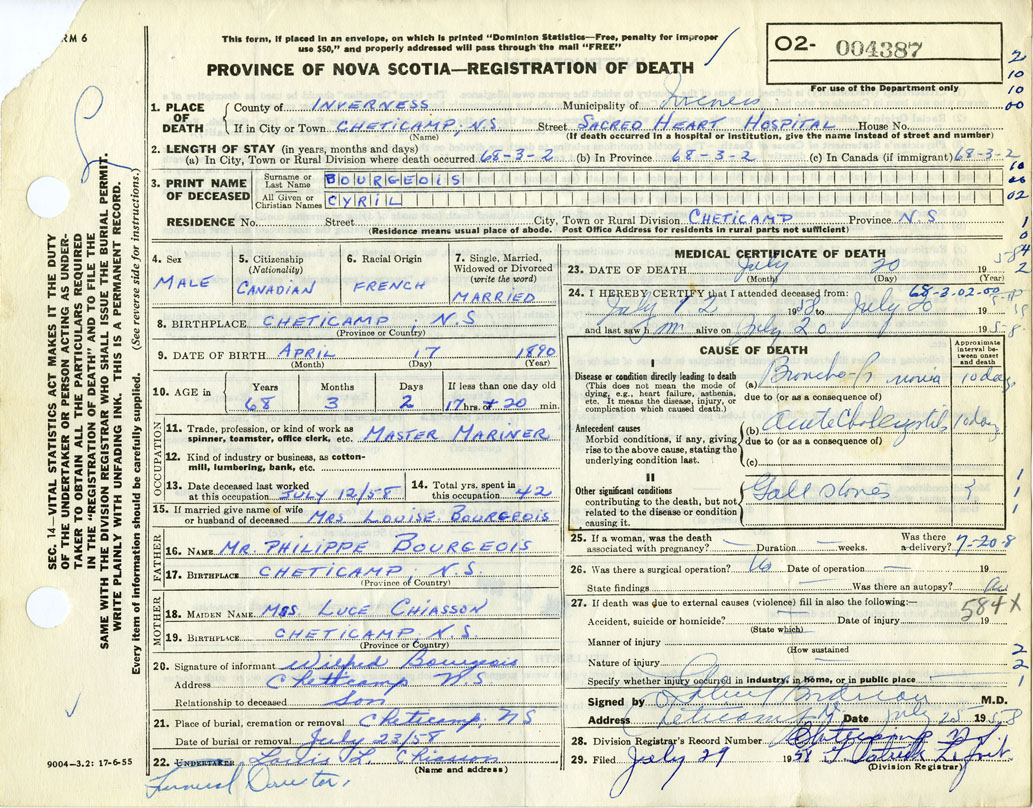 RM 6
This form, if placed in an envelope, on which is printed "Dominion Statistics—Free, penalty for improper
use $50," and properly addressed will pass through the mail "FREE"
PROVINCE OF NOVA SCOTIA—REGISTRATION OF DEATH
O2- 004387
For use of the Department only
1. PLACE OF DEATH
County of INVERNESS Municipality of Inverness
If in City or Town CHETICAMP, N.S Street SACRED HEART HOSPITAL House No.
(Name) (If death occurred in a hospital or institution, give the name instead of street and number)
2. LENGTH OF STAY (in years, months and days)
(a) In City, Town or Rural Division where death occurred 68-3-2 (b) In Province 68-3-2 (c) In Canada (if immigrant) 68-3-2
3. PRINT NAME OF DECEASED
Surname or Last Name BOURGEOIS
All Given or Christian Names CYRIL
RESIDENCE No. Street City, Town or Rural Division CHETICAMP Province N.S
(Residence means usual place of abode. Post Office Address for residents in rural parts not sufficient)
4. Sex MALE
5. Citizenship (Nationality) CANADIAN
6. Racial Origin FRENCH
7. Single, Married, Widowed or Divorced (write the word) MARRIED
8. BIRTHPLACE CHETICAMP, N.S
(Province or Country)
9. DATE OF BIRTH APRIL 17 1890
(Month) (Day) (Year)
10. AGE in Years Months Days If less than one day old
68 3 2 17 hrs. or 20 min.
OCCUPATION
11. Trade, profession, or kind of work as spinner, teamster, office clerk, etc. MASTER MARINER
12. Kind of industry or business, as cotton-mill, lumbering, bank, etc.
13. Date deceased last worked at this occupation JULY 12/58
14. Total yrs. spent in this occupation 42
15. If married give name of wife or husband of deceased MRS LOUISE BOURGEOIS
FATHER
16. NAME MR. PHILIPPE BOURGEOIS
17. BIRTHPLACE CHETICAMP, N.S.
(Province of Country)
MOTHER
18. MAIDEN NAME MRS LUCE CHIASSON
19. BIRTHPLACE CHETICAMP, N.S.
(Province or Country)
20. Signature of informant Wilfred Bourgeois
Address Cheticamp N.S
Relationship to deceased Son
21. Place of burial, cremation or removal Cheticamp NS
Date of burial or removal July 23/58
22. UNDERTAKER Louis L. Chiasson
(Name and address)
Funeral Director,
9004—3.2: 17-6-55
SEC. 14—VITAL STATISTICS ACT MAKES IT THE DUTY
OF THE UNDERTAKER OR PERSON ACTING AS UNDER-
TAKER TO OBTAIN ALL THE PARTICULARS REQUIRED
IN THE "REGISTRATION OF DEATH" AND TO FILE THE
SAME WITH THE DIVISION REGISTRAR WHO SHALL ISSUE THE BURIAL PERMIT.
WRITE PLAINLY WITH UNFADING INK. THIS IS A PERMANENT RECORD.
Every item of information should be carefully supplied. (See reverse side for instructions.)
MEDICAL CERTIFICATE OF DEATH
23. DATE OF DEATH July 20 19
(Month) (Day) (Year)
24. I HEREBY CERTIFY that I attended deceased from: 68-3-02-00
July 12 1958 to July 20
and last saw him alive on July 20 1958
CAUSE OF DEATH
Approximate interval between onset and death
I
Disease or condition directly leading to death
(This does not mean the mode of dying, e.g., heart failure, asthenia, etc. It means the disease, injury, or complication which caused death.)
(a) 10 days
due to (or as a consequence of)
Antecedent causes
Morbid conditions, if any, giving rise to the above cause, stating the underlying condition last.
(b) Acute 10 days
due to (or as a consequence of)
(c)
II
Other significant conditions
contributing to the death, but not related to the disease or condition causing it.
Gall stones ?
25. If a woman, was the death associated with pregnancy? — Duration — weeks. Was there a delivery? 7-20-8
26. Was there a surgical operation? No Date of operation — 19
State findings — Was there an autopsy? No
27. If death was due to external causes (violence) fill in also the following:— 584X
Accident, suicide or homicide? Date of injury 19
(State which)
Manner of injury
(How sustained
Nature of injury
Specify whether injury occurred in industry, in home, or in public place
Signed by M.D.
Address Cheticamp Date July 25 1958
28. Division Registrar's Record Number Cheticamp NS
29. Filed July 29 1958
(Division Registrar)